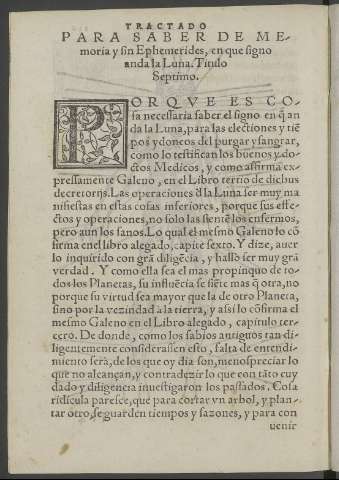 TRACTADO
PARA SABER DE ME-
moria y sin Ephemerides, en que signo
anda la Luna. Titulo
Septimo.
PORQVE ES CO-
sa necessaria saber el signo en q̃ an
da la Luna, para las electiones y tiẽ
pos ydoneos del purgar y sangrar,
como lo testifican los buenos y do-
ctos Medicos, y como affirma ex-
pressamente Galeno, en el Libro tertio de diebus
decretorijs. Las operationes d̃ la Luna ser muy ma
nifiestas en estas cosas inferiores, porque sus effe-
ctos y operaciones, no solo las sientẽ los enfermos,
pero aun los sanos. Lo qual el mesmo Galeno lo cõ
firma en el libro alegado, capite sexto. Y dize, auer
lo inquirido con grã diligẽcia, y hallo ser muy grã
verdad. Y como ella sea el mas propinquo de to-
dos los Planetas, su influẽcia se siẽte mas q̃ otra, no
porque su virtud sea mayor que la de otro Planeta,
sino por la vezindad a la tierra, y assi lo cõfirma el
mesmo Galeno en el Libro alegado, capitulo ter-
cero. De donde, como los sabios antiguos tan di-
ligentemente considerassen esto, falta de entendi-
miento serà, de los que oy dia son, menospreciar lo
que no alcançan, y contradezir lo que con tãto cuy
dado y diligencia inuestigaron los passados. Cosa
ridicula paresce, que para cortar vn arbol, y plan-
tar otro, se guarden tiempos y sazones, y para con
uenir